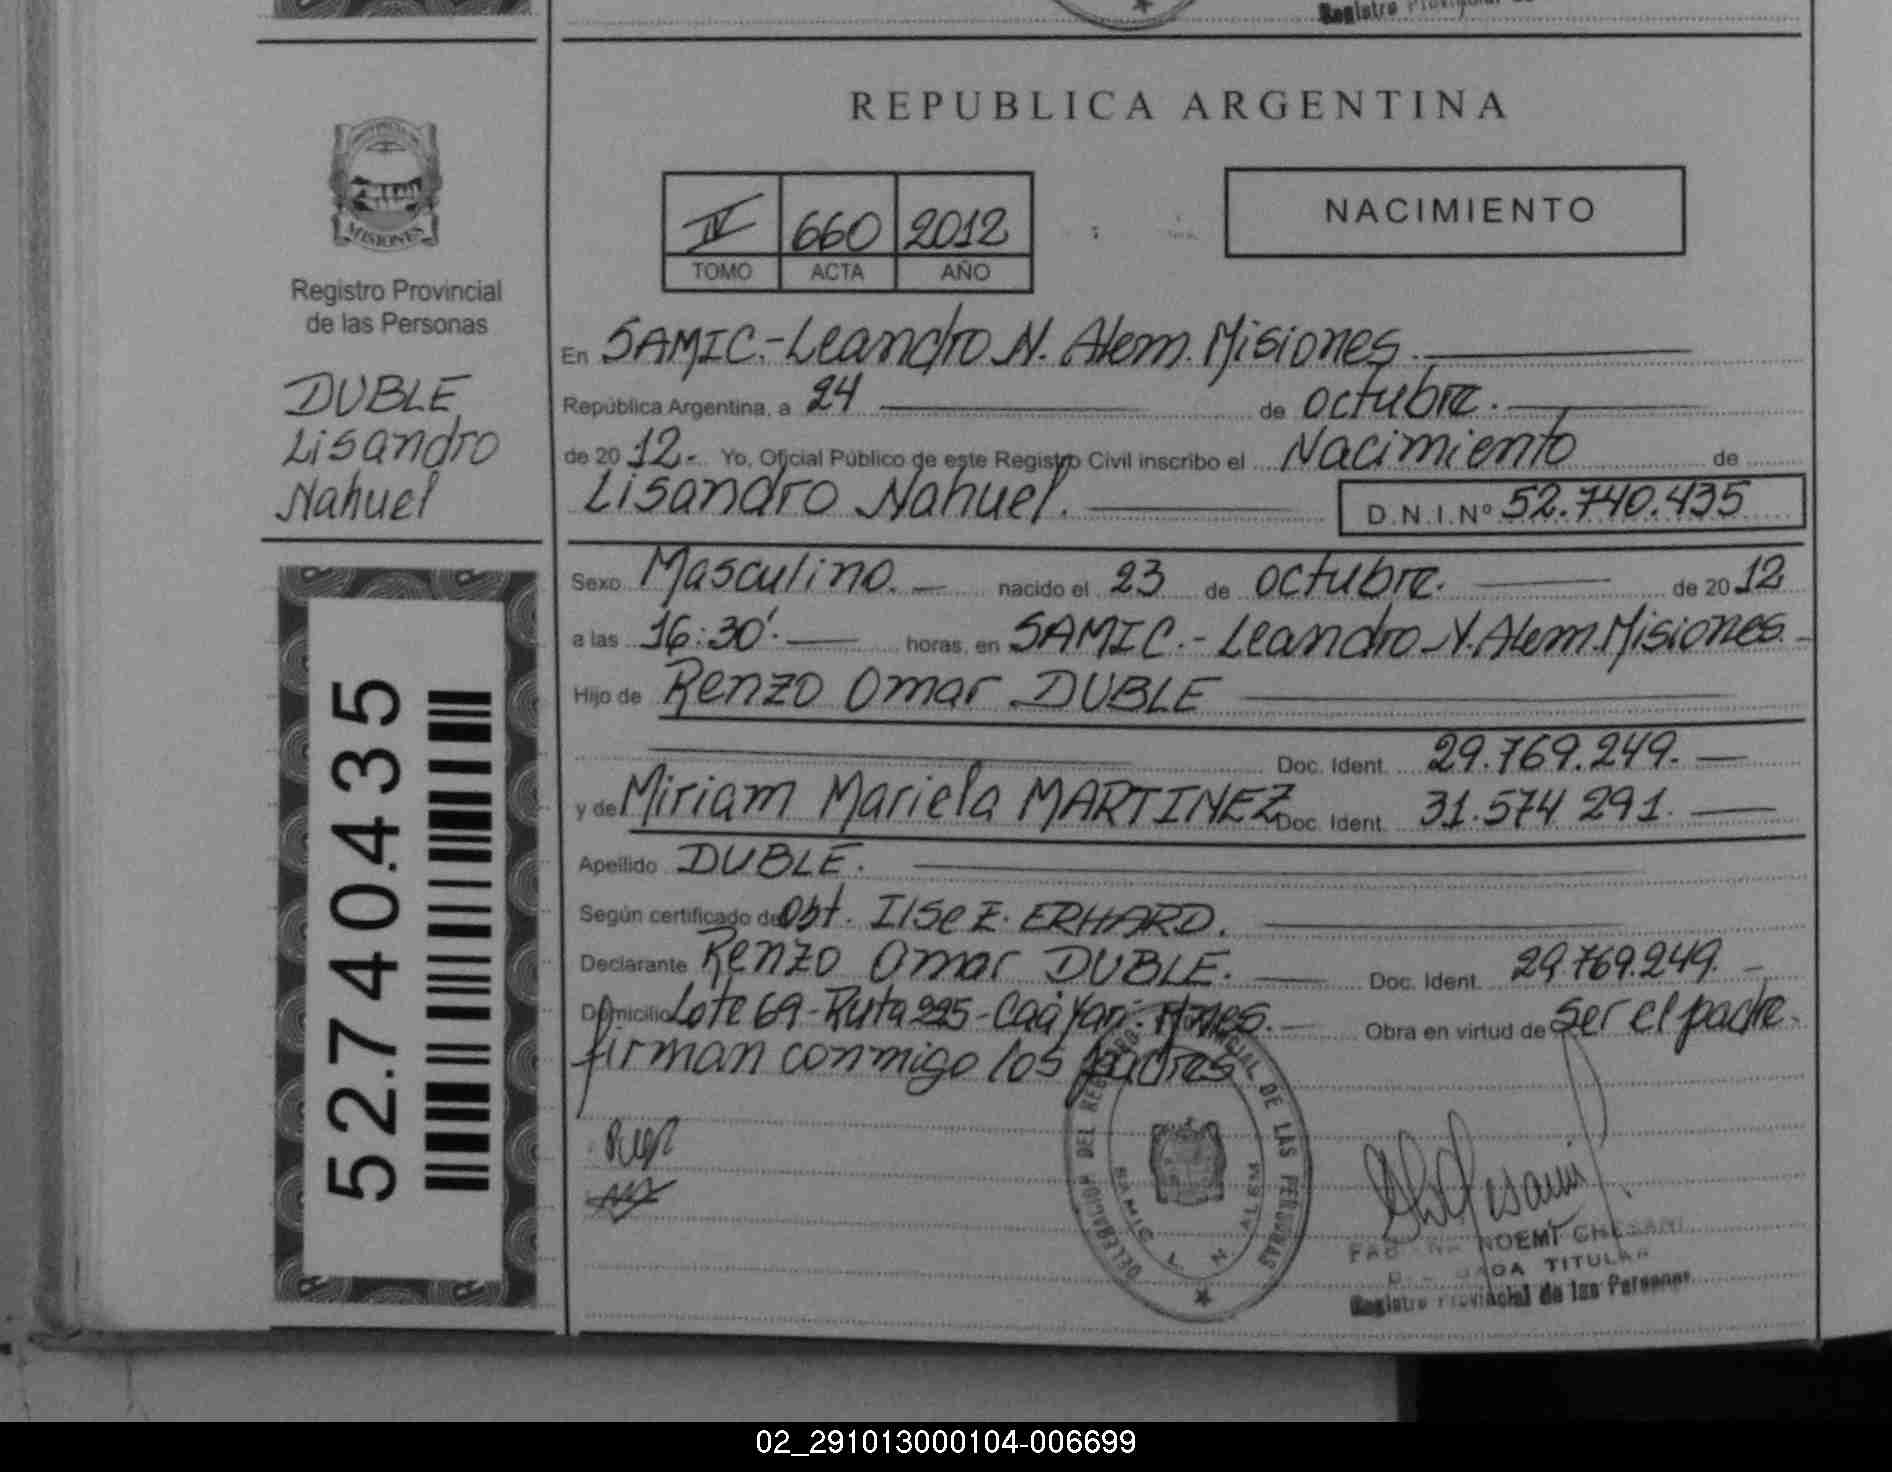 REPUBLICA ARGENTINA
MISIONES
Registro Provincial
de las Personas
DUBLE
Lisandro
Nahuel
52.740.435
IV 660 2012
TOMO ACTA AÑO
NACIMIENTO
En SAMIC.-Leandro N. Alem. Misiones.
República Argentina, a 24 de octubre.
de 2012.- Yo, Oficial Público de este Registro Civil inscribo el Nacimiento de
Lisandro Nahuel. D.N.I.Nº 52.740.435
Sexo Masculino. nacido el 23 de octubre. de 2012
a las 16:30'. horas, en SAMIC.- Leandro N. Alem. Misiones.
Hijo de Renzo Omar DUBLE
Doc. Ident. 29.769.249.
y de Miriam Mariela MARTINEZ Doc. Ident. 31.574 291.
Apellido DUBLE.
Según certificado de Obt. Ilse E. ERHARD.
Declarante Renzo Omar DUBLE. Doc. Ident. 29.769.249.
Domicilio Lote 69-Ruta 225-Caá Yarí. Mnes. Obra en virtud de ser el padre.
firman conmigo los padres
DELEGACION DEL REGISTRO PROVINCIAL DE LAS PERSONAS
SAMIC L. N. ALEM
NOEMI CHESANI
TITULAR
Registro Provincial de las Personas
02_291013000104-006699